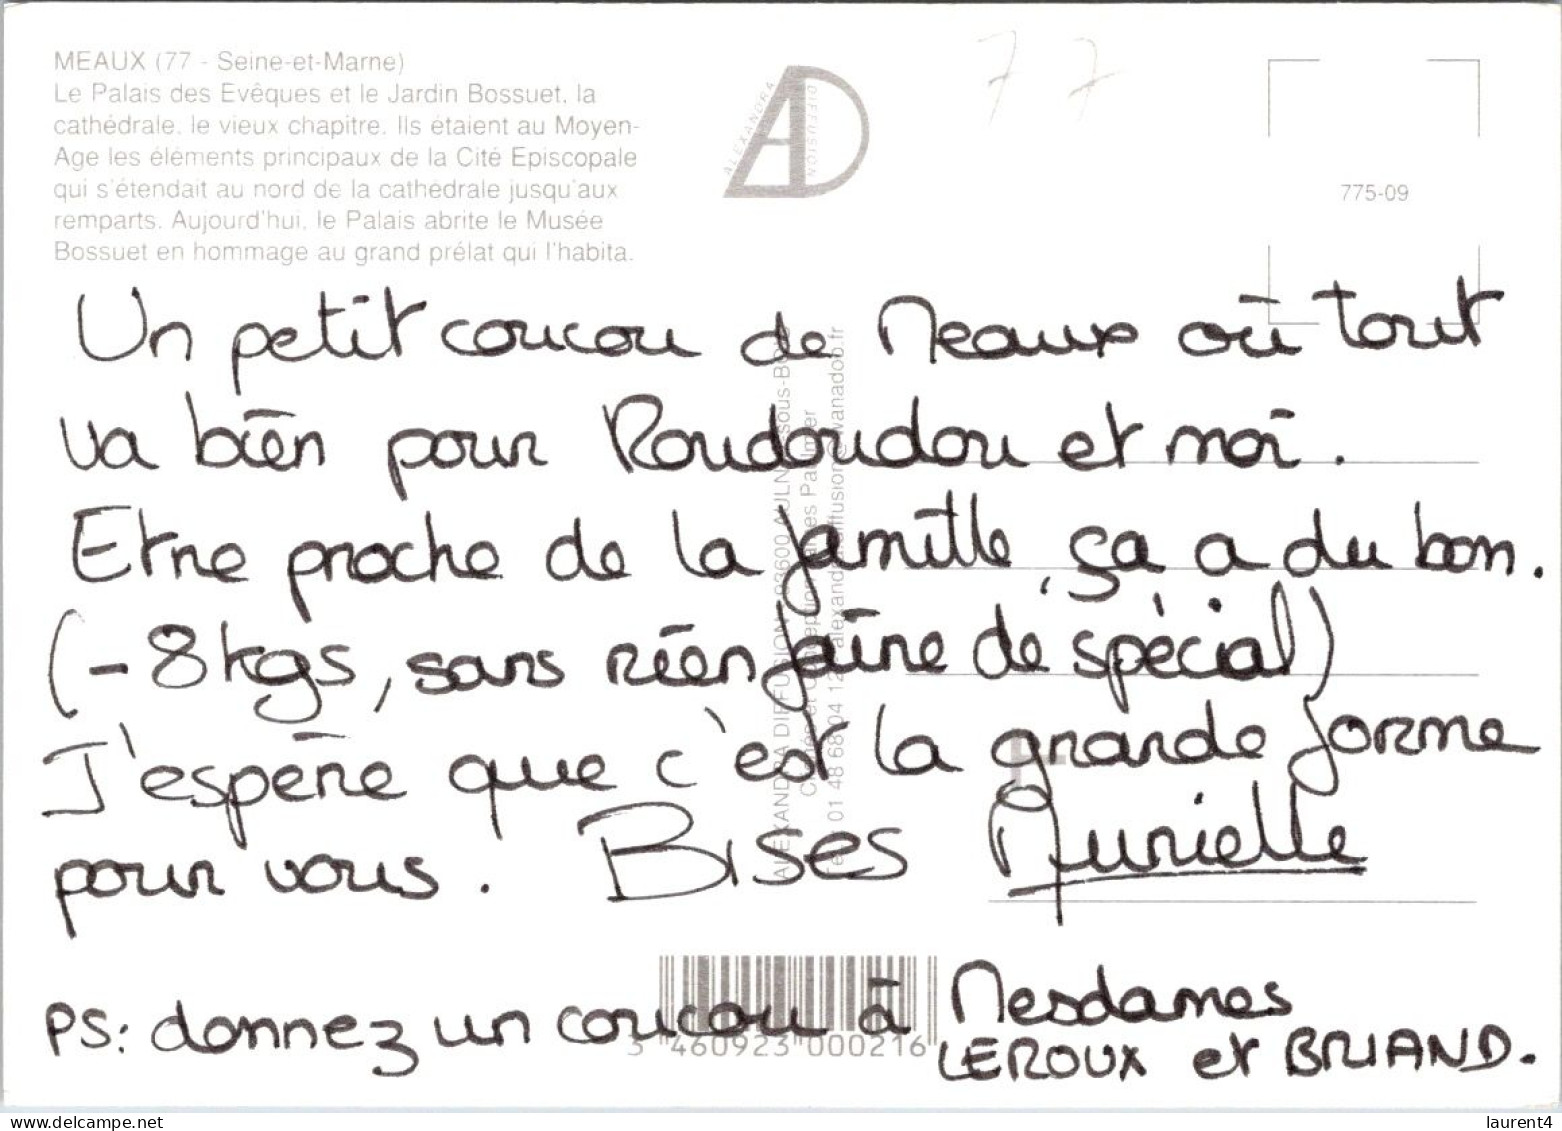 MEAUX (77 - Seine-et-Marne)
Le Palais des Evêques et le Jardin Bossuet, la
cathédrale, le vieux chapitre. Ils étaient au Moyen-
Age les éléments principaux de la Cité Episcopale
qui s'étendait au nord de la cathédrale jusqu'aux
remparts. Aujourd'hui, le Palais abrite le Musée
Bossuet en hommage au grand prélat qui l'habita.
ALEXANDRA
DIFFUSION
77
775-09
Un petit coucou de Meaux où tout
va bien pour Roudoudou et moi.
Etre proche de la famille, ça a du bon.
(- 8 kgs, sans rien faire de spécial)
J'espère que c'est la grande forme
pour vous. BISES Murielle
PS: donnez un coucou à Mesdames
LEROUX et BRIAND.
ALEXANDRA DIFFUSION - 93600 AULNAY-sous-BOIS
3 460923 000216
laurent4